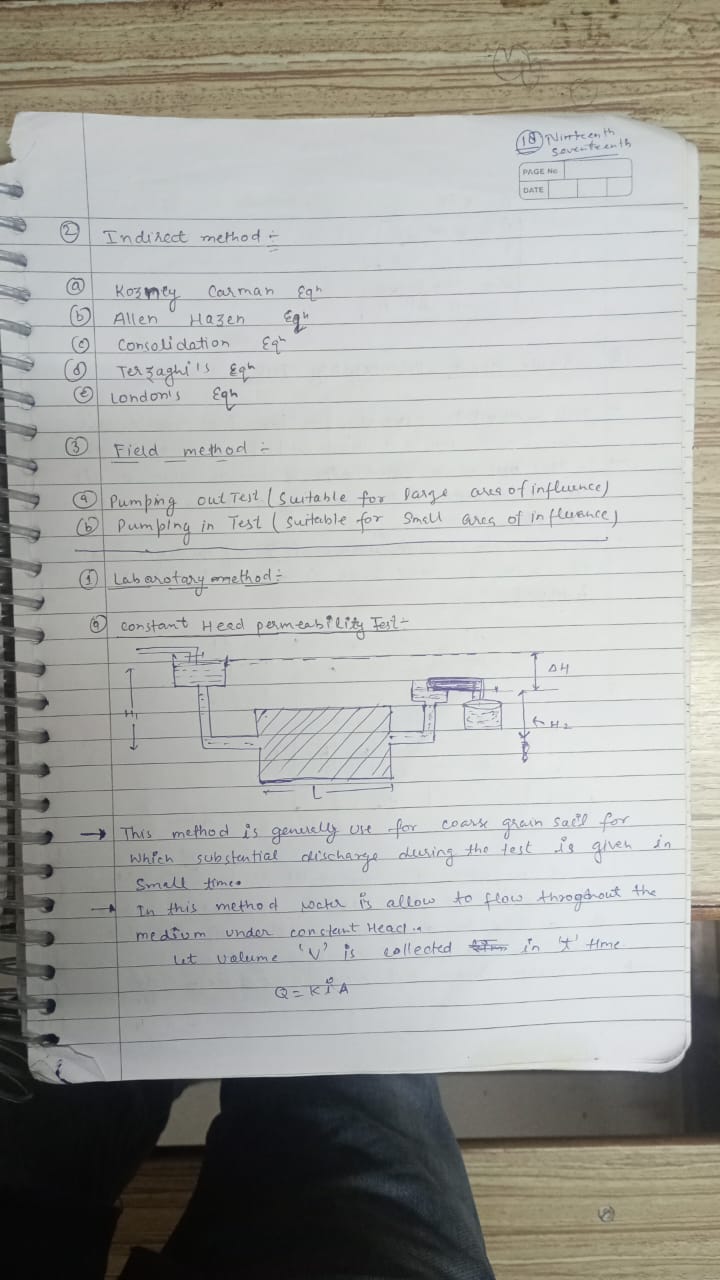 18 Ninteenth
Seventeenth
PAGE No
DATE
② Indirect method :-
ⓐ Kozney Carman Eqn
ⓑ Allen Hazen Eqn
ⓒ Consolidation Eqn
ⓓ Terzaghi's Eqn
ⓔ London's Eqn
③ Field method :-
ⓐ Pumping out Test (Suitable for large area of influence)
ⓑ Pumping in Test (Suitable for Small area of influence)
① Labarotary method :-
ⓐ Constant Head permeability Test -
ΔH
H1
H2
L
→ This method is generally use for coarse grain soil for
which substential discharge during the test is given in
Small time.
→ In this method water is allow to flow throghout the
medium under constent Head.
Let volume 'V' is collected in 't' time
Q = K i A